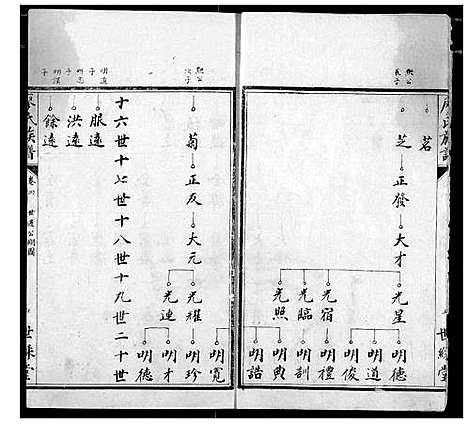 廖氏族譜
世綵堂
熙公
長子
茗
芝—正發—大才—光星
明德
明道
明俊
光宿
明禮
光臨
明訓
光照
明典
明誥
熙公
次子
菊—正反—大元—光耀
明寬
明珍
光連
明才
明德
十六世十七世十八世十九世二十世
明道
子
服遠
洪遠
明漢
子
餘遠
廖氏族譜
卷四
世道公嗣圖
世綵堂